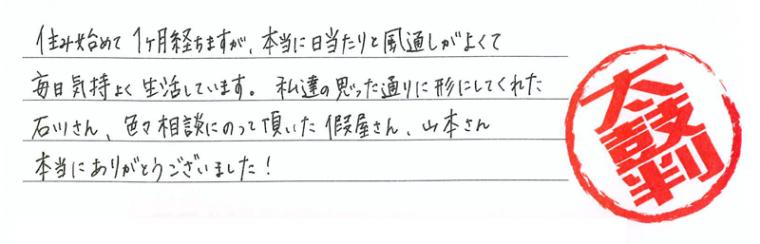 住み始めて1ヶ月経ちますが、本当に日当たりと風通しがよくて
毎日気持よく生活しています。私達の思った通りに形にしてくれた
石川さん、色々相談にのって頂いた假屋さん、山本さん
本当にありがとうございました！
太鼓判